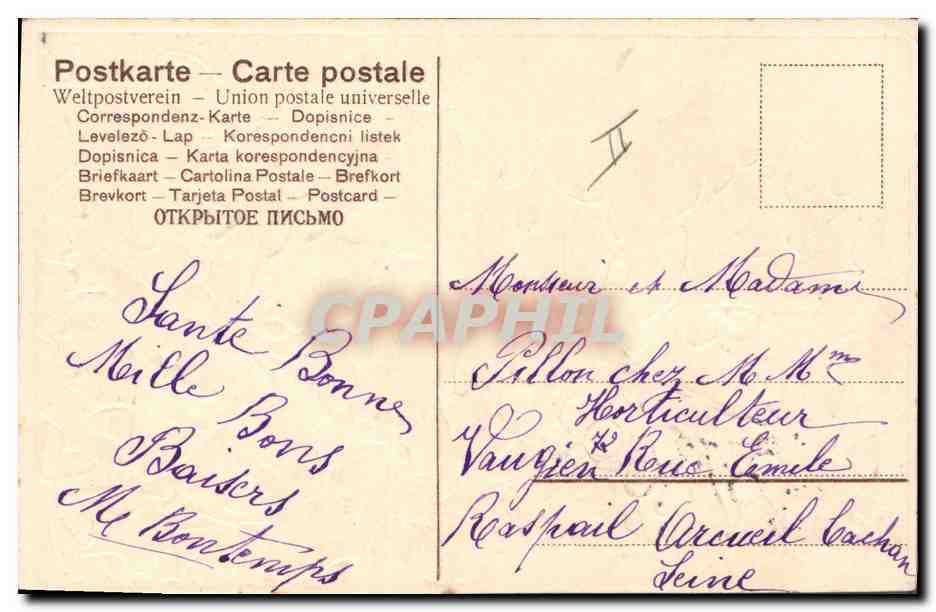 Postkarte — Carte postale
Weltpostverein — Union postale universelle
Correspondenz-Karte — Dopisnice —
Levelező-Lap — Korespondencni listek
Dopisnica — Karta korespondencyjna
Briefkaart — Cartolina Postale — Brefkort
Brevkort — Tarjeta Postal — Postcard —
ОТКРЫТОЕ ПИСЬМО
II
Sante Bonne
Mille Bons
Baisers
Me Bontemps
Monsieur et Madame
Pillon chez M Mme
Horticulteur
Vaugien 72 Rue Emile
Raspail Arcueil Cachan
Seine
CPAPHIL